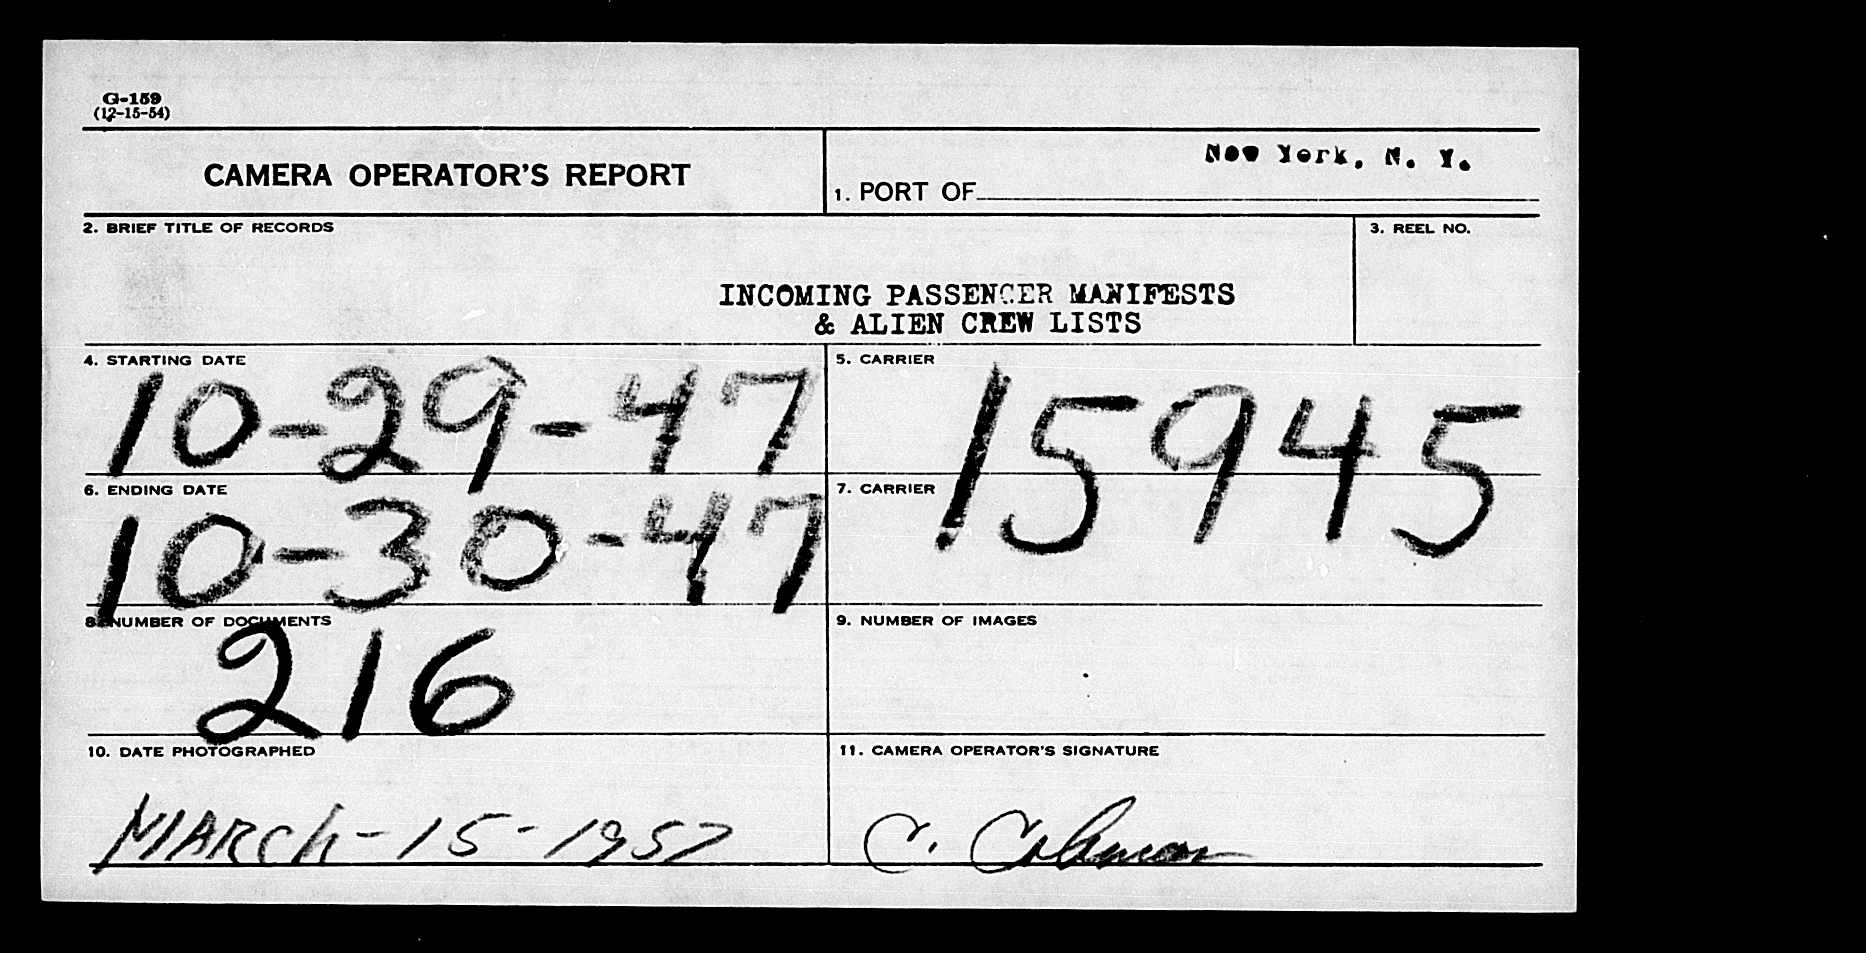 G-159
(12-15-54)
CAMERA OPERATOR'S REPORT
New York, N. Y.
1. PORT OF
2. BRIEF TITLE OF RECORDS
3. REEL NO.
INCOMING PASSENGER MANIFESTS
& ALIEN CREW LISTS
4. STARTING DATE
10-29-47
5. CARRIER
15945
6. ENDING DATE
10-30-47
7. CARRIER
8. NUMBER OF DOCUMENTS
216
9. NUMBER OF IMAGES
10. DATE PHOTOGRAPHED
MARCh-15-1957
11. CAMERA OPERATOR'S SIGNATURE
C. Coleman